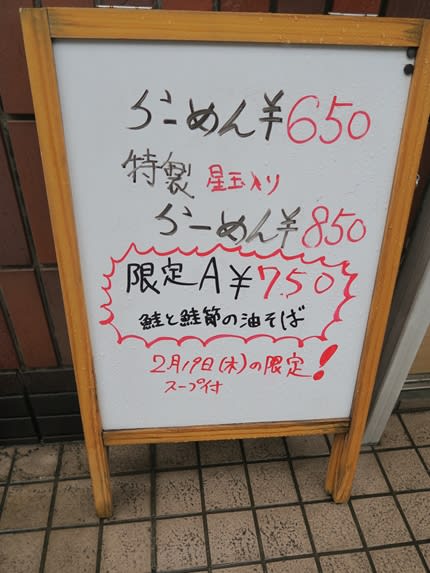 らーめん¥650
特製 星玉入り
らーめん¥850
限定A¥750
鮭と鮭節の油そば
2月19日(木)の限定!
スープ付